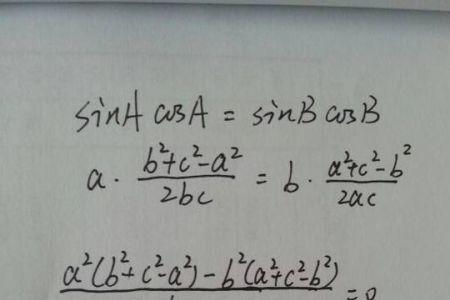 sinA cosA = sinB cosB
a · (b²+c²-a²)/(2bc) = b · (a²+c²-b²)/(2ac)
a²(b²+c²-a²)-b²(a²+c²-b²)